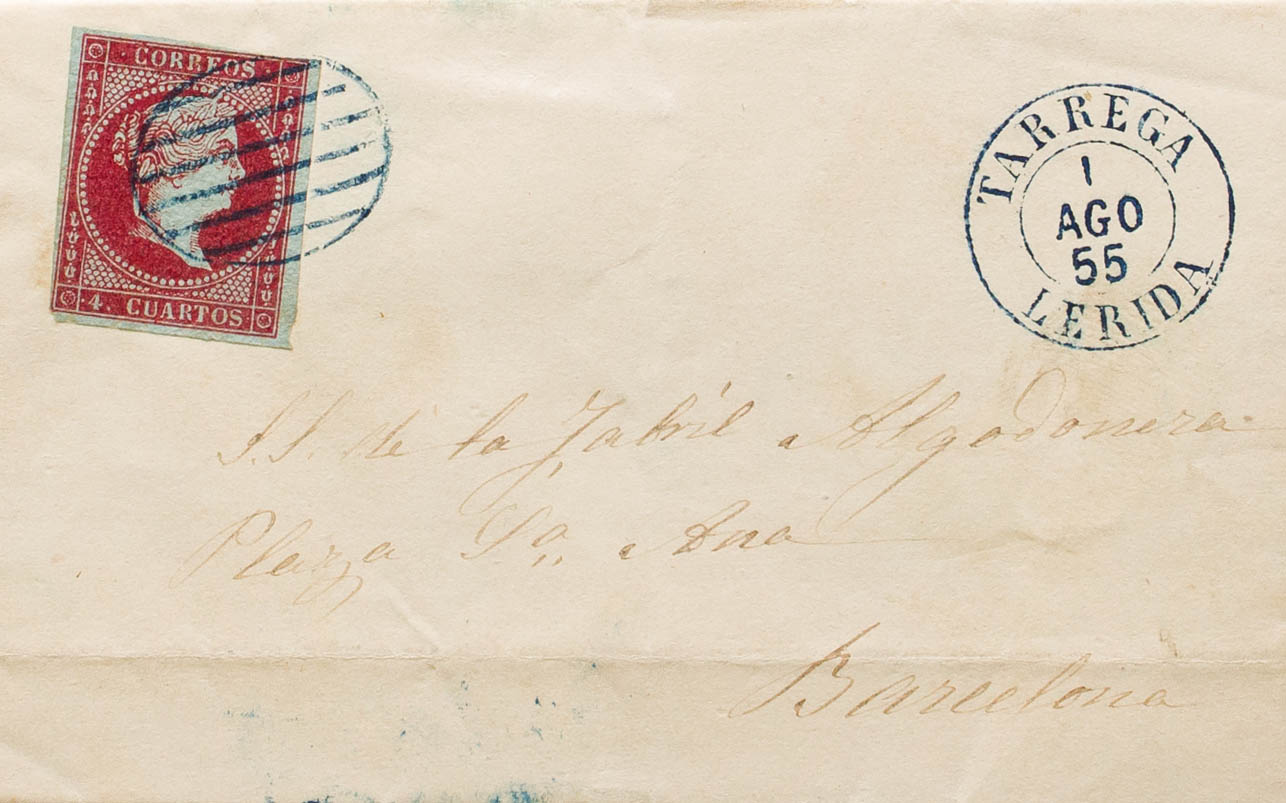 CORREOS
4. CUARTOS
TARREGA
1
AGO
55
LERIDA
S.S. de la Fabril Algodonera
Plaza Sa. Ana
Barcelona